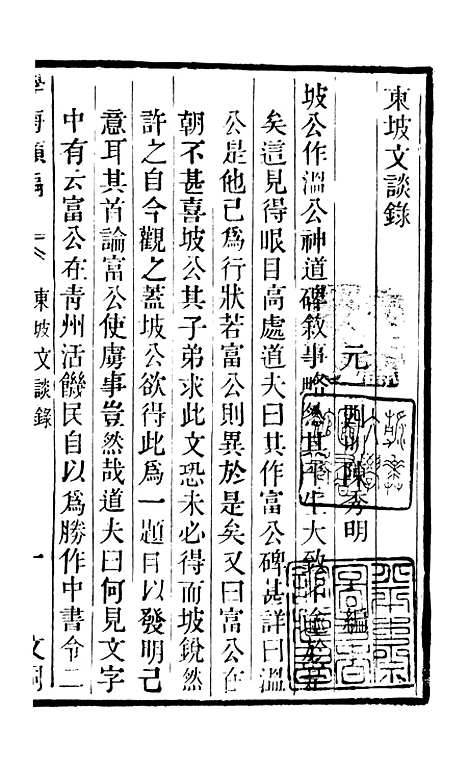 東坡文談錄
元 四明陳秀明 言編
坡公作溫公神道碑敘事略然其平生大致不踰於是
矣這見得眼目高處道夫曰其作富公碑甚詳曰溫
公是他已爲行狀若富公則異於是矣又曰富公在
朝不甚喜坡公其子弟求此文恐未必得而坡銳然
許之自今觀之蓋坡公欲得此爲一題目以發明己
意耳其首論富公使虜事豈然哉道夫曰何見文字
中有云富公在青州活饑民自以爲勝作中書令二
學海類編 東坡文談錄 一 文詞